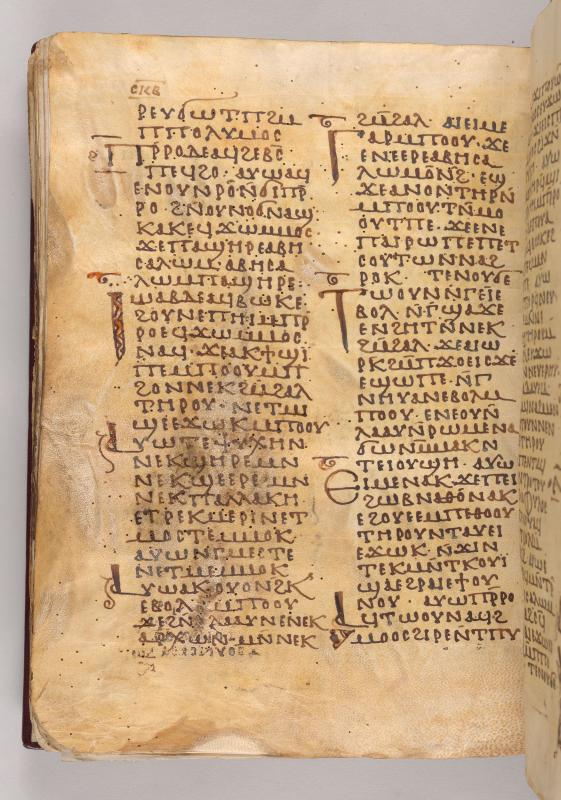 ⲥⲕⲃ
ⲣⲉⲩϭⲱⲧⲡ ϩⲙ
ⲡⲡⲟⲗⲩⲙⲟⲥ
ⲡⲣⲣⲟ ⲇⲉ ⲁϥϩⲉⲃⲥ
ⲡⲉϥϩⲟ· ⲁⲩⲱ ⲁϥ
ⲛϭⲓ ⲡⲣ
ⲣⲟ· ϩⲛ ⲟⲩⲛⲟϭ ⲛⲁϣ
ⲕⲁⲕ ⲉϥϫⲱ ⲙⲙⲟⲥ
ϫⲉ ⲡⲁϣⲏⲣⲉ ⲁⲃⲏ
ⲥⲁⲗⲱⲙ· ⲁⲃⲏⲥⲁ
ⲗⲱⲙ ⲡⲁϣⲏⲣⲉ·
ⲓⲱⲁⲃ ⲇⲉ ⲁϥⲃⲱⲕ ⲉ
ϩⲟⲩⲛ ⲉⲡⲏⲓ ⲙⲡⲣ
ⲣⲟ ⲉϥϫⲱ ⲙⲙⲟⲥ
ⲛⲁϥ· ϫⲉ ⲁⲕϯϣⲓ
ⲡⲉ ⲙⲡⲟⲟⲩ ⲙⲡ
ϩⲟ ⲛⲛⲉⲕϩⲙϩⲁⲗ
ⲧⲏⲣⲟⲩ· ⲛⲉⲧⲙⲓ
ϣⲉ ⲉϫⲱⲕ ⲙⲡⲟⲟⲩ
ⲁⲩⲱ ⲧⲉⲯⲩⲭⲏ ⲛ
ⲛⲉⲕϣⲏⲣⲉ ⲙⲛ
ⲛⲉⲕϣⲉⲉⲣⲉ ⲙⲛ
ⲛⲉⲕⲡⲁⲗⲗⲁⲕⲏ
ⲉⲧⲣⲉⲕⲙⲉⲣⲓ ⲛⲉⲧ
ⲙⲟⲥⲧⲉ ⲙⲙⲟⲕ
ⲁⲩⲱ ⲛⲅⲙⲉⲥⲧⲉ
ⲛⲉⲧⲙⲉ ⲙⲙⲟⲕ
ⲁⲩⲱ ⲁⲕⲟⲩⲟⲛϩⲕ
ⲉⲃⲟⲗ ⲙⲡⲟⲟⲩ
ϫⲉ ϩⲛⲗⲁⲁⲩ ⲛⲉ ⲛⲉⲕ
ⲁⲣⲭⲱⲛ· ⲙⲛ ⲛⲉⲕ
ϩⲙϩⲁⲗ· ⲁⲓⲉⲓⲙⲉ
ⲅⲁⲣ ⲙⲡⲟⲟⲩ· ϫⲉ
ⲉⲛⲉⲉⲣⲉ ⲁⲃⲏⲥⲁ
ⲗⲱⲙ ⲟⲛϩ· ⲉϣ
ϫⲉ ⲁⲛⲟⲛ ⲧⲏⲣⲛ
ⲙⲡⲟⲟⲩ ⲧⲛⲙⲟ
ⲟⲩⲧ ⲡⲉ· ϫⲉ ⲉⲛⲉ
ⲡⲁⲓ ⲣⲱ ⲡⲉ ⲡⲉⲧ
ⲥⲟⲩⲧⲱⲛ ⲛⲁϩ
ⲣⲟⲕ· ⲧⲉⲛⲟⲩ ϭⲉ
ⲧⲱⲟⲩⲛ ⲛⲅⲉⲓ ⲉ
ⲃⲟⲗ ⲛⲅϣⲁϫⲉ
ⲉⲛϩⲏⲧ ⲛⲛⲉⲕ
ϩⲙϩⲁⲗ· ϫⲉ ⲁⲓⲱ
ⲣⲕ ϩⲙ ⲡϫⲟⲉⲓⲥ ϫⲉ
ⲉϣⲱⲡⲉ· ⲛⲅ
ⲛⲏⲩ ⲁⲛ ⲉⲃⲟⲗ ⲙ
ⲡⲟⲟⲩ· ⲉⲛⲉ ⲟⲩⲛ
ⲗⲁⲁⲩ ⲛⲣⲱⲙⲉ ⲛⲁ
ϭⲱ ⲛⲙⲙⲁⲕ ⲛ
ⲧⲉⲓⲟⲩϣⲏ· ⲁⲩⲱ
ⲉⲓⲙⲉ ⲛⲁⲕ· ϫⲉ ⲡⲉⲓ
ϩⲱⲃ ⲛⲁⲑⲟⲛⲁⲕ
ⲉϩⲟⲩⲉ ⲉⲙⲡⲉⲑⲟⲟⲩ
ⲧⲏⲣⲟⲩ ⲛⲧⲁⲩⲉⲓ
ⲉϫⲱⲕ· ⲛϫⲓⲛ
ⲧⲉⲕⲙⲛⲧⲕⲟⲩⲓ
ϣⲁ ⲉϩⲣⲁⲓ ⲉϯⲟⲩ
ⲛⲟⲩ· ⲁⲩⲱ ⲡⲣⲣⲟ
ϥⲧⲱⲟⲩⲛ ⲁϥϩ
ⲙⲟⲟⲥ ϩⲓⲣⲉⲛ ⲧⲡⲩ